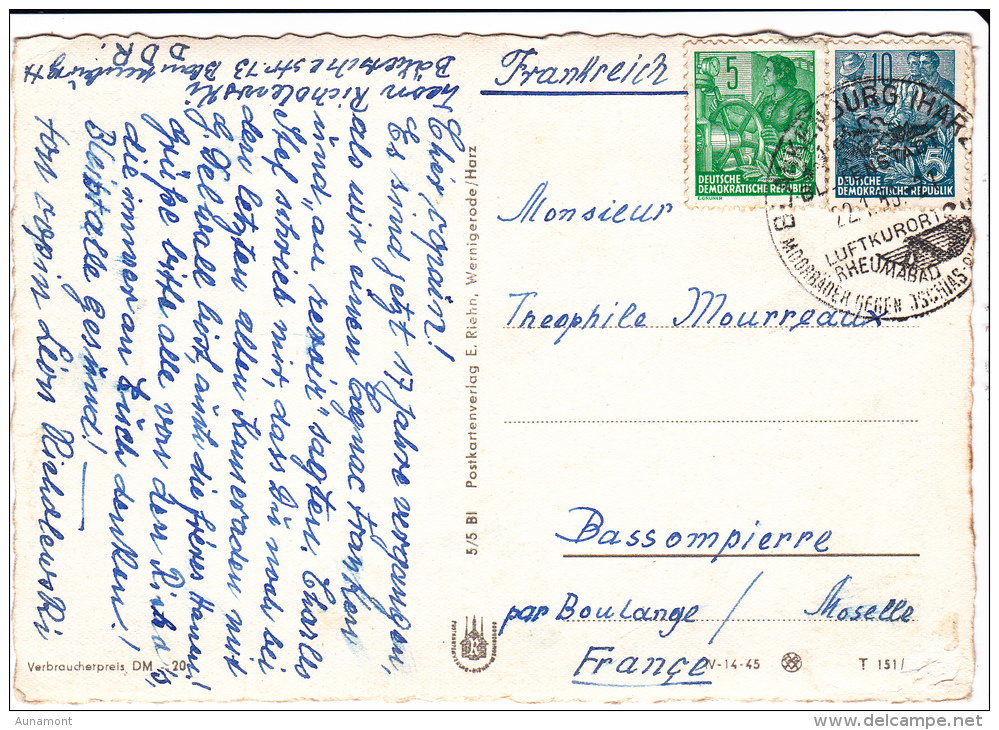 Leon Richolewski
Bähetschestr. 73 Blankenburg H
DDR.
Cher copain!
Es sind jetzt 17 Jahre vergangen,
als wir einen Cognac tranken
und "au revoir" sagten. Charles
Stef schrieb mir, dass Du noch bei
den letzten alten Kameraden mit
G. Delwall bist, auch die frères Hennri
grüße bitte alle von den Richo's,
die immer an Euch denken!
Bleibt alle gesund!
ton copin Léon Richolewski
5/5 Bl Postkartenverlag E. Riehn, Wernigerode/Harz
Verbraucherpreis DM -.20
Frankreich
5
DEUTSCHE
DEMOKRATISCHE REPUBLIK
10
5
DEUTSCHE
DEMOKRATISCHE REPUBLIK
BLANKENBURG (HARZ)
22.1.
LUFTKURORT
RHEUMABAD
MOORBÄDER GEGEN ISCHIAS
Monsieur
Theophile Mourreaux
Bassompierre
par Boulange / Moselle
France
IV-14-45
T 151/
Aunamont
© delcampe.net